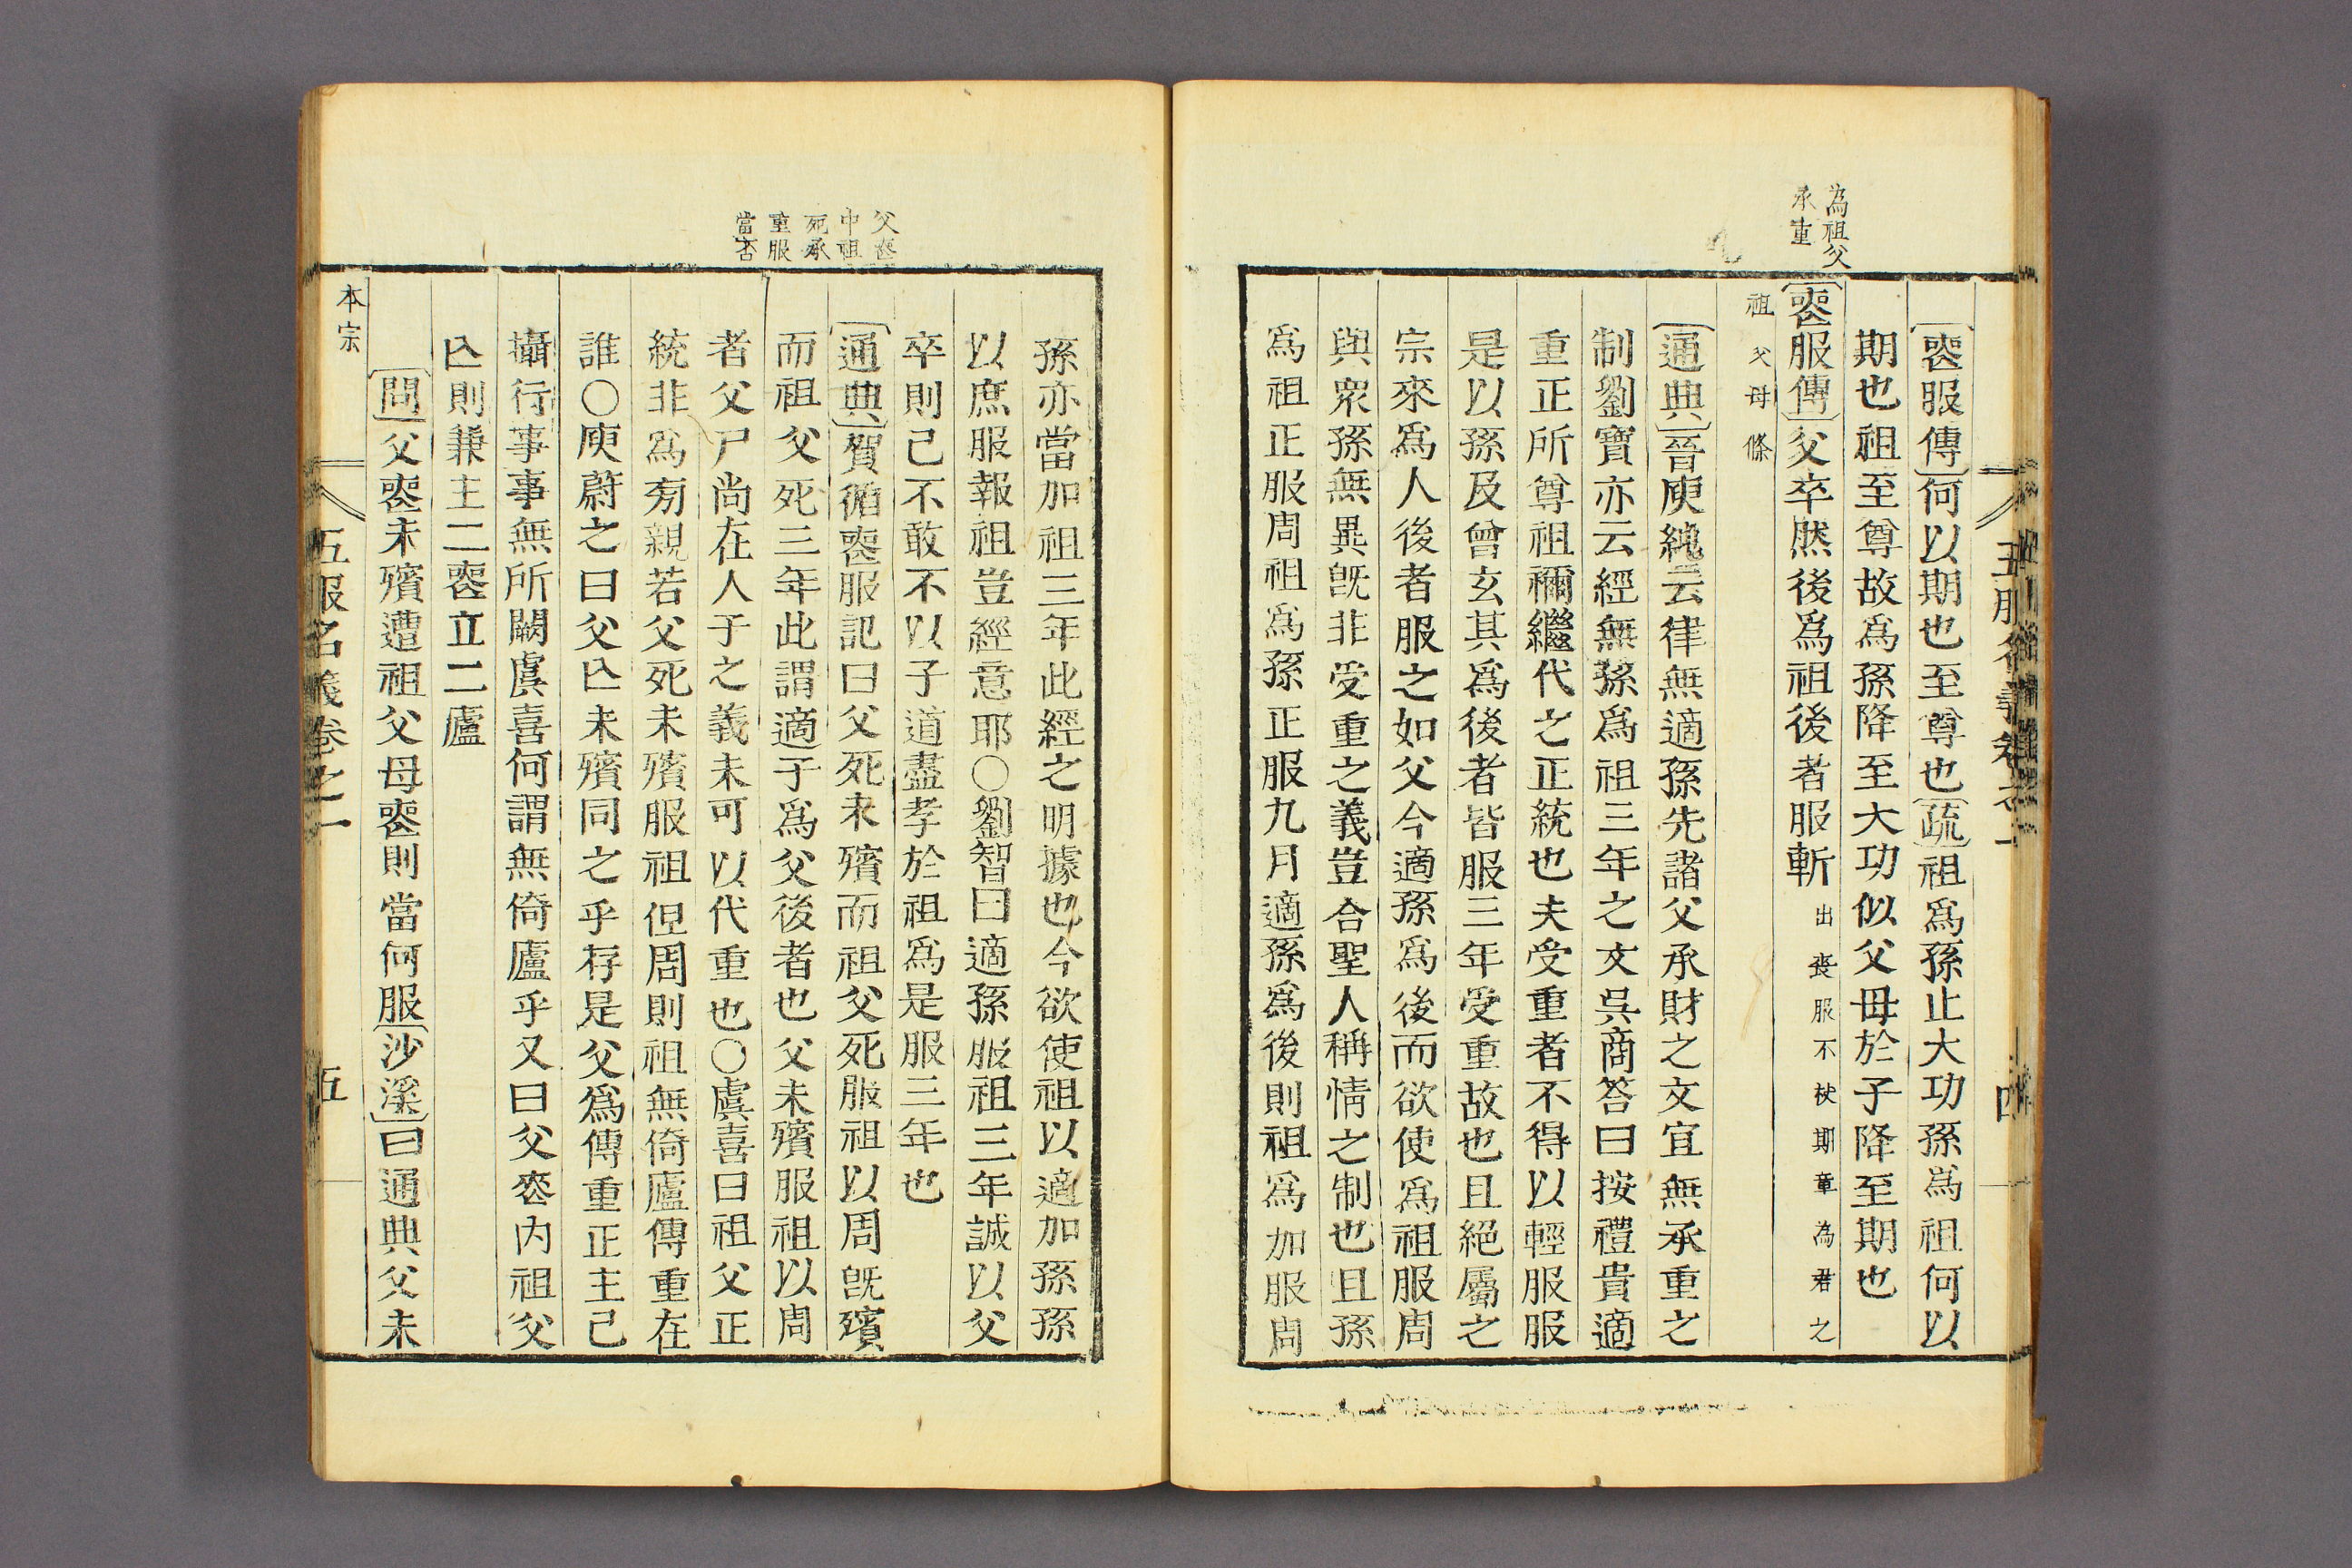 為祖父
承重
〔喪服傳〕何以期也至尊也〔疏〕祖爲孫止大功孫爲祖何以
期也祖至尊故爲孫降至大功似父母於子降至期也
〔喪服傳〕父卒然後爲祖後者服斬出喪服不杖期章為君之
祖父母條
〔通典〕晉庾純云律無適孫先諸父承財之文宜無承重之
制劉寶亦云經無孫爲祖三年之文吳商答曰按禮貴適
重正所尊祖禰繼代之正統也夫受重者不得以輕服服
是以孫及曾玄其爲後者皆服三年受重故也且絕屬之
宗來爲人後者服之如父今適孫爲後而欲使爲祖服周
與衆孫無異旣非受重之義豈合聖人稱情之制也且孫
爲祖正服周祖爲孫正服九月適孫爲後則祖爲加服周
五服名義卷之一
四
父喪
中祖
死承
重服
當否
孫亦當加祖三年此經之明據也今欲使祖以適加孫孫
以庶服報祖豈經意耶○劉智曰適孫服祖三年誠以父
卒則己不敢不以子道盡孝於祖爲是服三年也
〔通典〕賀循喪服記曰父死未殯而祖父死服祖以周旣殯
而祖父死三年此謂適子爲父後者也父未殯服祖以周
者父尸尚在人子之義未可以代重也○虞喜曰祖父正
統非爲旁親若父死未殯服祖但周則祖無倚廬傳重在
誰○庾蔚之曰父亾未殯同之乎存是父爲傳重正主己
攝行事事無所闕虞喜何謂無倚廬乎又曰父喪內祖父
亾則兼主二喪立二廬
〔問〕父喪未殯遭祖父母喪則當何服〔沙溪〕曰通典父未
本宗
五服名義卷之一
五